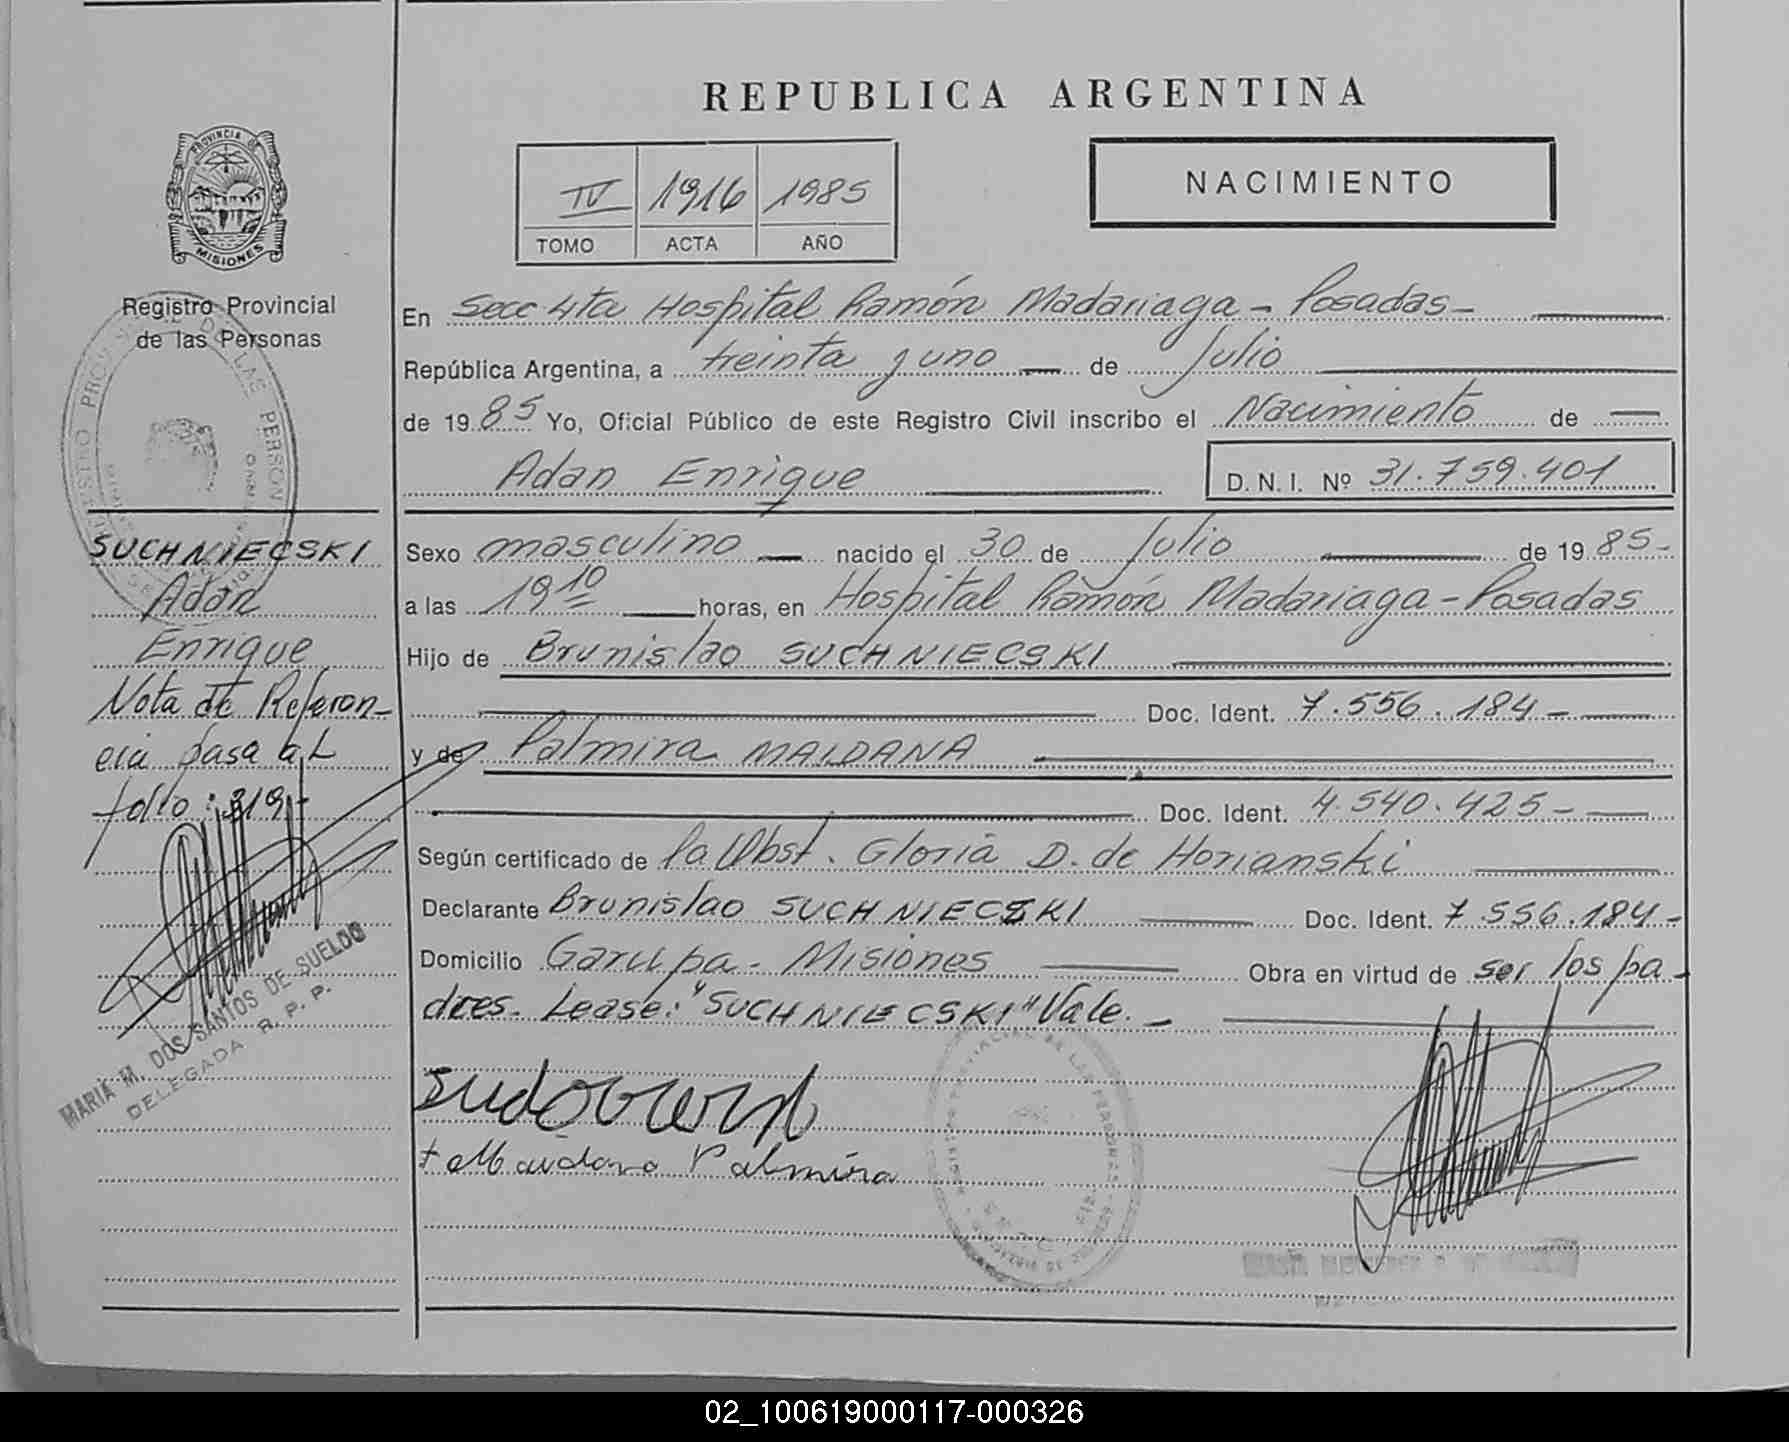 REPUBLICA ARGENTINA
PROVINCIA DE
MISIONES
Registro Provincial
de las Personas
IV 1916 1985
TOMO ACTA AÑO
NACIMIENTO
En Secc 4ta Hospital Ramón Madariaga - Posadas -
República Argentina, a treinta y uno de Julio
de 1985 Yo, Oficial Público de este Registro Civil inscribo el Nacimiento de
Adan Enrique D.N.I. Nº 31.759.401
Sexo masculino nacido el 30 de Julio de 1985-
a las 19 10 horas, en Hospital Ramón Madariaga - Posadas
Hijo de Brunislao SUCHNIECSKI
Doc. Ident. 7.556.184 -
y de Palmira MALDANA
Doc. Ident. 4.540.425 -
Según certificado de la Obst. Gloria D. de Horianski
Declarante Brunislao SUCHNIECSKI Doc. Ident. 7.556.184.-
Domicilio Garupa - Misiones Obra en virtud de ser los pa-
dres. Lease: "SUCHNIECSKI" Vale. -
Palmira
SUCHNIECSKI
Adan
Enrique
Nota de Referen-
cia pasa al
folio: 319-
MARIA M. DOS SANTOS DE SUELDO
DELEGADA R. P. P.
02_100619000117-000326